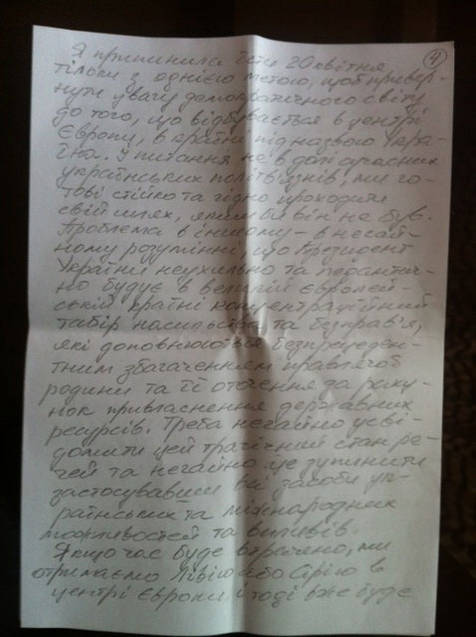 4
Я припинила їсти 20 квітня,
тільки з однією метою, щоб привер-
нути увагу демократичного світу
до того, що відбувається в центрі
Європи, в країні під назвою Укра-
їна. І питання не в долі сучасних
українських політв'язнів, ми го-
тові стійко та гідно проходити
свій шлях, яким би він не був.
Проблема в іншому – в негай-
ному розумінні, що Президент
України неухильно та педантич-
но будує в великій європей-
ській країні концентраційний
табір насильства та безправ'я,
які доповнюються безпрецеден-
тним збагаченням правлячої
родини та її оточення за раху-
нок привласнення державних
ресурсів. Треба негайно усві-
домити цей трагічний стан ре-
чей та негайно це зупинити
застосувавши всі засоби ук-
раїнських та міжнародних
можливостей та впливів.
Якщо час буде втрачено, ми
отримаємо Лівію або Сірію в
центрі Європи і тоді вже буде